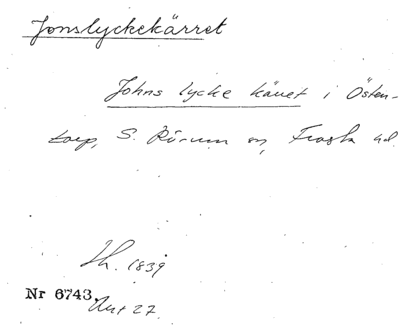 Jonslyckekärret
Johns lycke käret i Östen-
torp, S. Rörum sn, Frosta hd.
Sk. 1839
Nr 6743.
Akt 27.